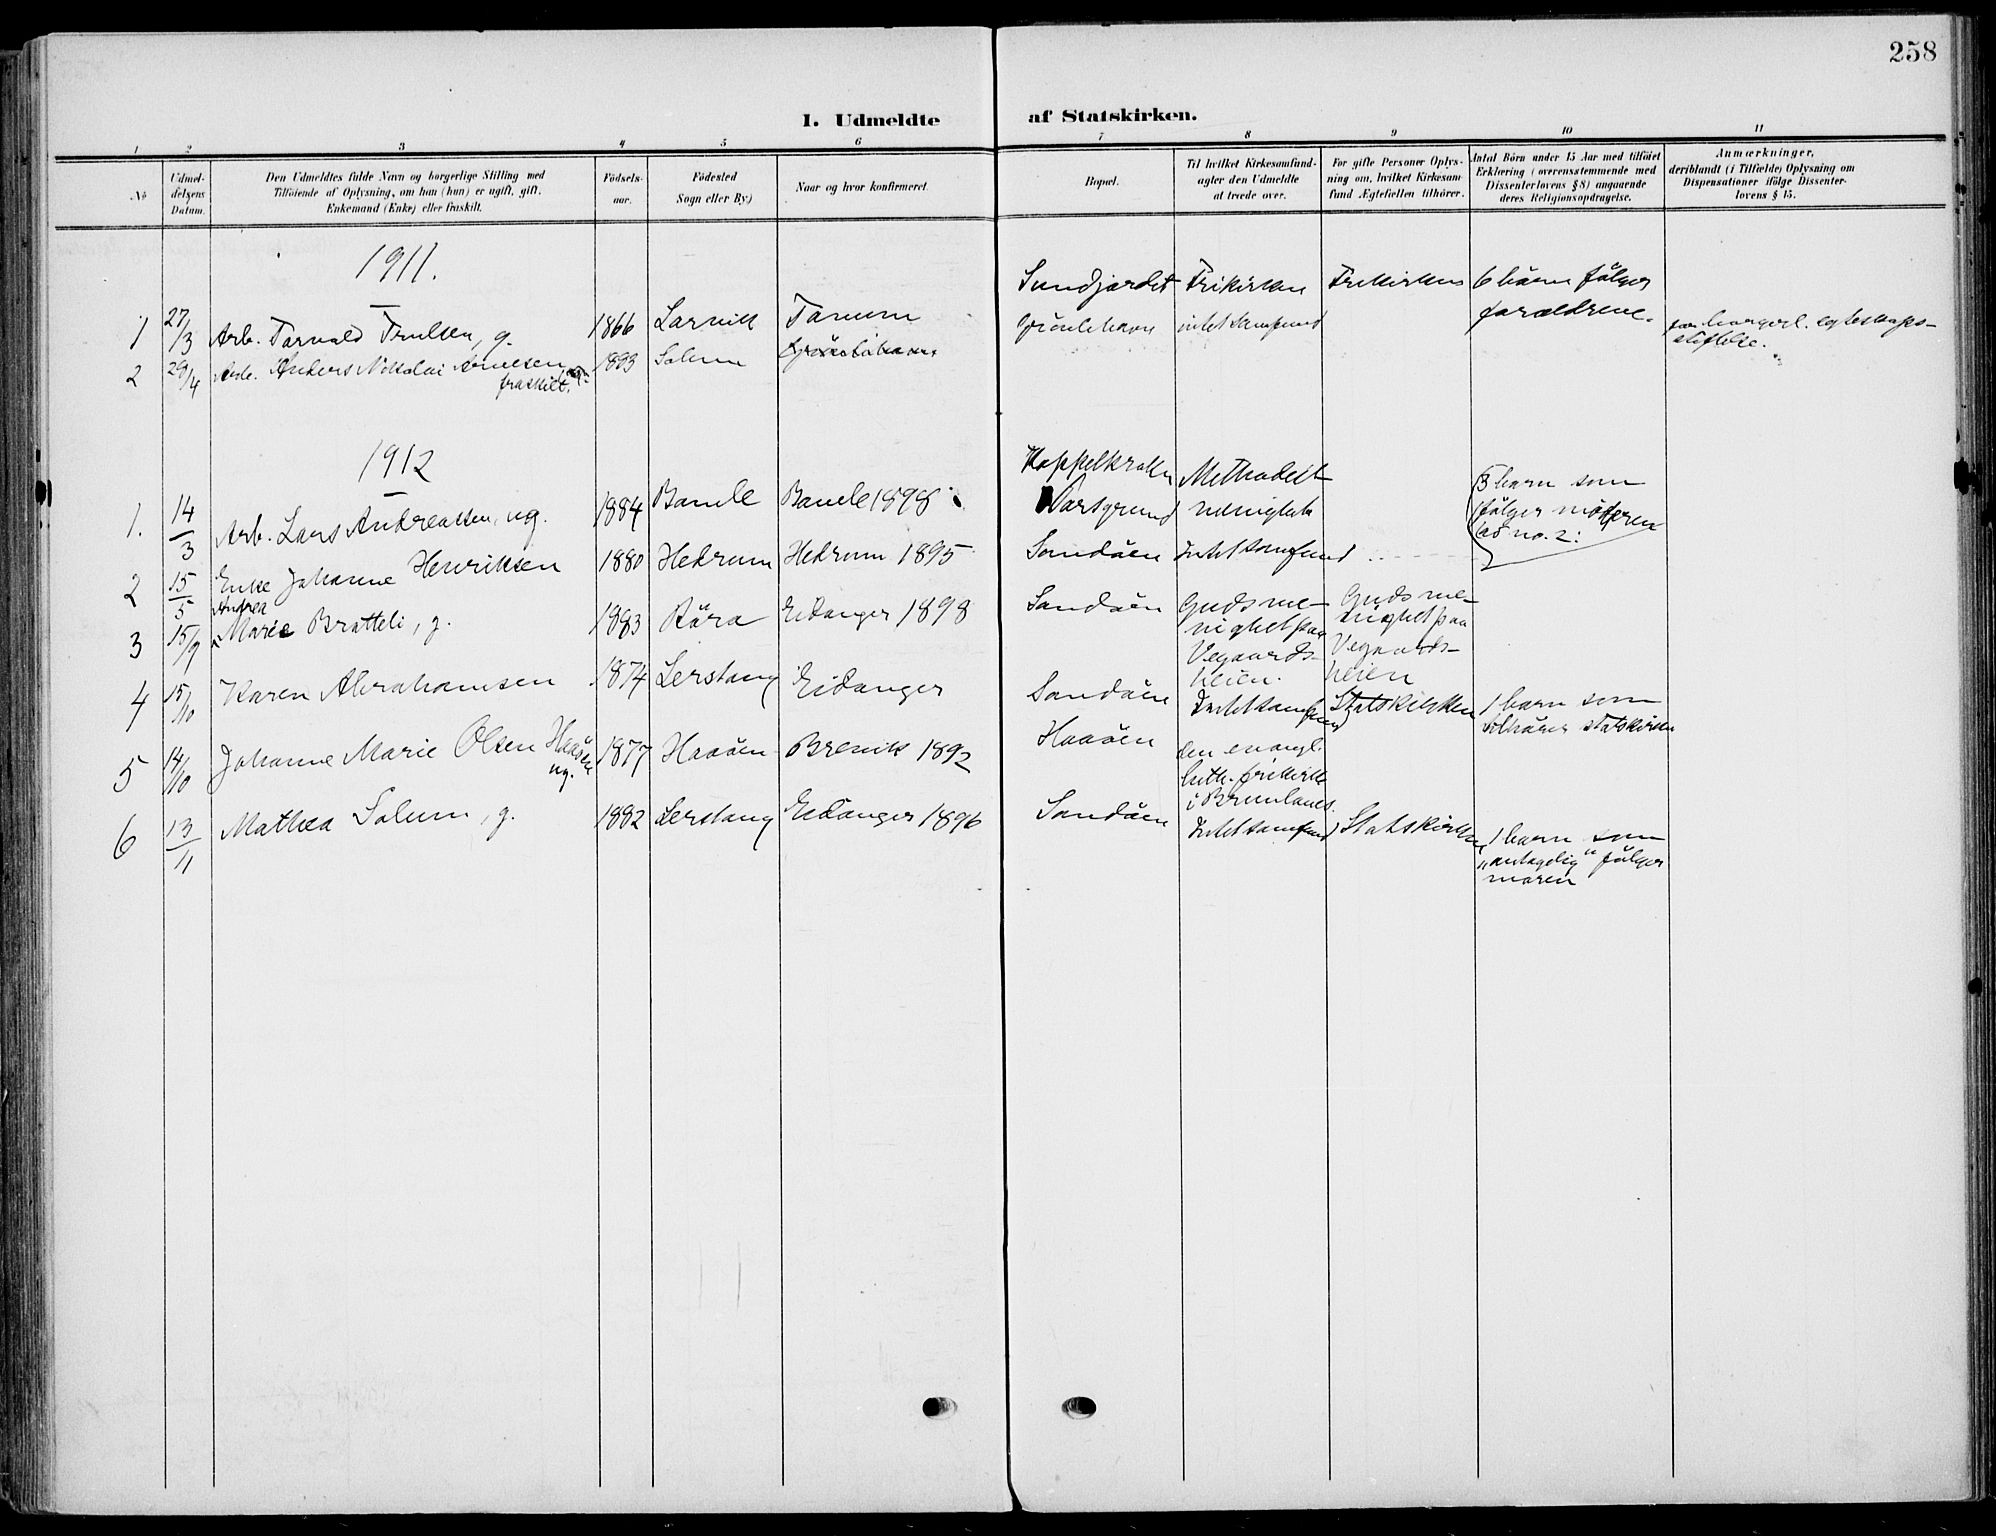 258
1. Udmeldte af Statskirken.
1 2 3 4 5 6 7 8 9 10 11
№
Udmel-
delsens
Datum.
Den Udmeldtes fulde Navn og borgerlige Stilling med
Tilföiende af Oplysning, om han (hun) er ugift, gift,
Enkemand (Enke) eller fraskilt.
Födsels-
aar.
Födested
Sogn eller By)
Naar og hvor konfirmeret.
Bopæl.
Til hvilket Kirkesamfund-
agter den Udmeldte
at træde over.
For gifte Personer Oplys-
ning om, hvilket Kirkesam-
fund Ægtefællen tilhörer.
Antal Börn under 15 Aar med tilföiet
Erklæring (overensstemmende med
Dissenterlovens § 8) angaaende
deres Religionsopdragelse.
Anmærkninger,
deriblandt (i Tilfælde) Oplysning om
Dispensationer ifölge Dissenter-
lovens § 15.
1911.
1 27/3 Arb. Torvald Trulsen, g. 1866 Larvik Tanum Sundjordet Frikirken Frikirken 6 børn følger
forældrene.
2 29/4 Arb. Anders Nikolai Arnesen, 1893 Solum intet samfund for borgerl. egteskaps-
fraskilt. stiftelse.
1912
1. 14/3 Arb. Lars Andreassen, ug. 1884 Bamle Bamle 1898 Methodist
menighet
3 barn som
følger moren
ad no. 2:
2 15/5 Enke Johanne Henriksen 1880 Hedrum Hedrum 1895 Sandöen Intet samfund
3 15/9 Andrea
Marie Bratteli, g. 1883 Röra Eidanger 1898 Sandöen Guds me-
nighet paa
Vegaards-
heien.
Guds me-
nighet paa
Vegaards-
heien
4 15/10 Karen Abrahamsen 1874 Lerstang Eidanger Sandöen Intet samfund Statskirken 1 barn som
tilhører statskirken
5 14/10 Johanne Marie Olsen Haaöen 1877 Haaöen Brevik 1892 Haaöen den evangl.
ug. luth. frikirke
i Brunlanes.
6 13/11 Mathea Solum, g. 1882 Lerstang Eidanger 1896 Sandöen Intet samfund Statskirken 1 barn som
"antagelig" følger
moren